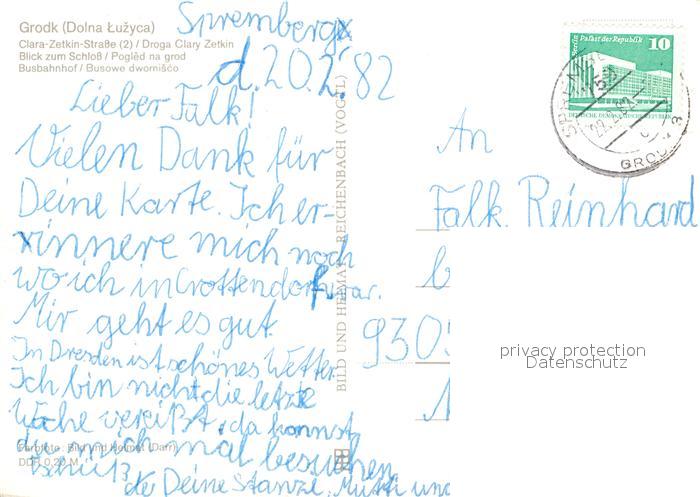 Grodk (Dolna Łužyca)
Clara-Zetkin-Straße (2) / Droga Clary Zetkin
Blick zum Schloß / Pogłěd na grod
Busbahnhof / Busowe dwornišćo
Spremberg
d. 20.2. 82
Lieber Falk!
Vielen Dank für
Deine Karte. Ich er-
innere mich noch
wo ich in Crottendorf war.
Mir geht es gut.
Im Dresden ist schönes Wetter.
Ich bin nicht die letzte
Woche vereißt, da konnst
du mich mal besuchen
Tschüß
der Deine Mutti und
Farbfoto: Bild und Heimat (Darr)
DDR 0,20 M
BILD UND HEIMAT REICHENBACH (VOGTL)
Berlin Palast der Republik
10
DEUTSCHE DEMOKRATISCHE REPUBLIK
An
Falk Reinhard
930
privacy protection
Datenschutz